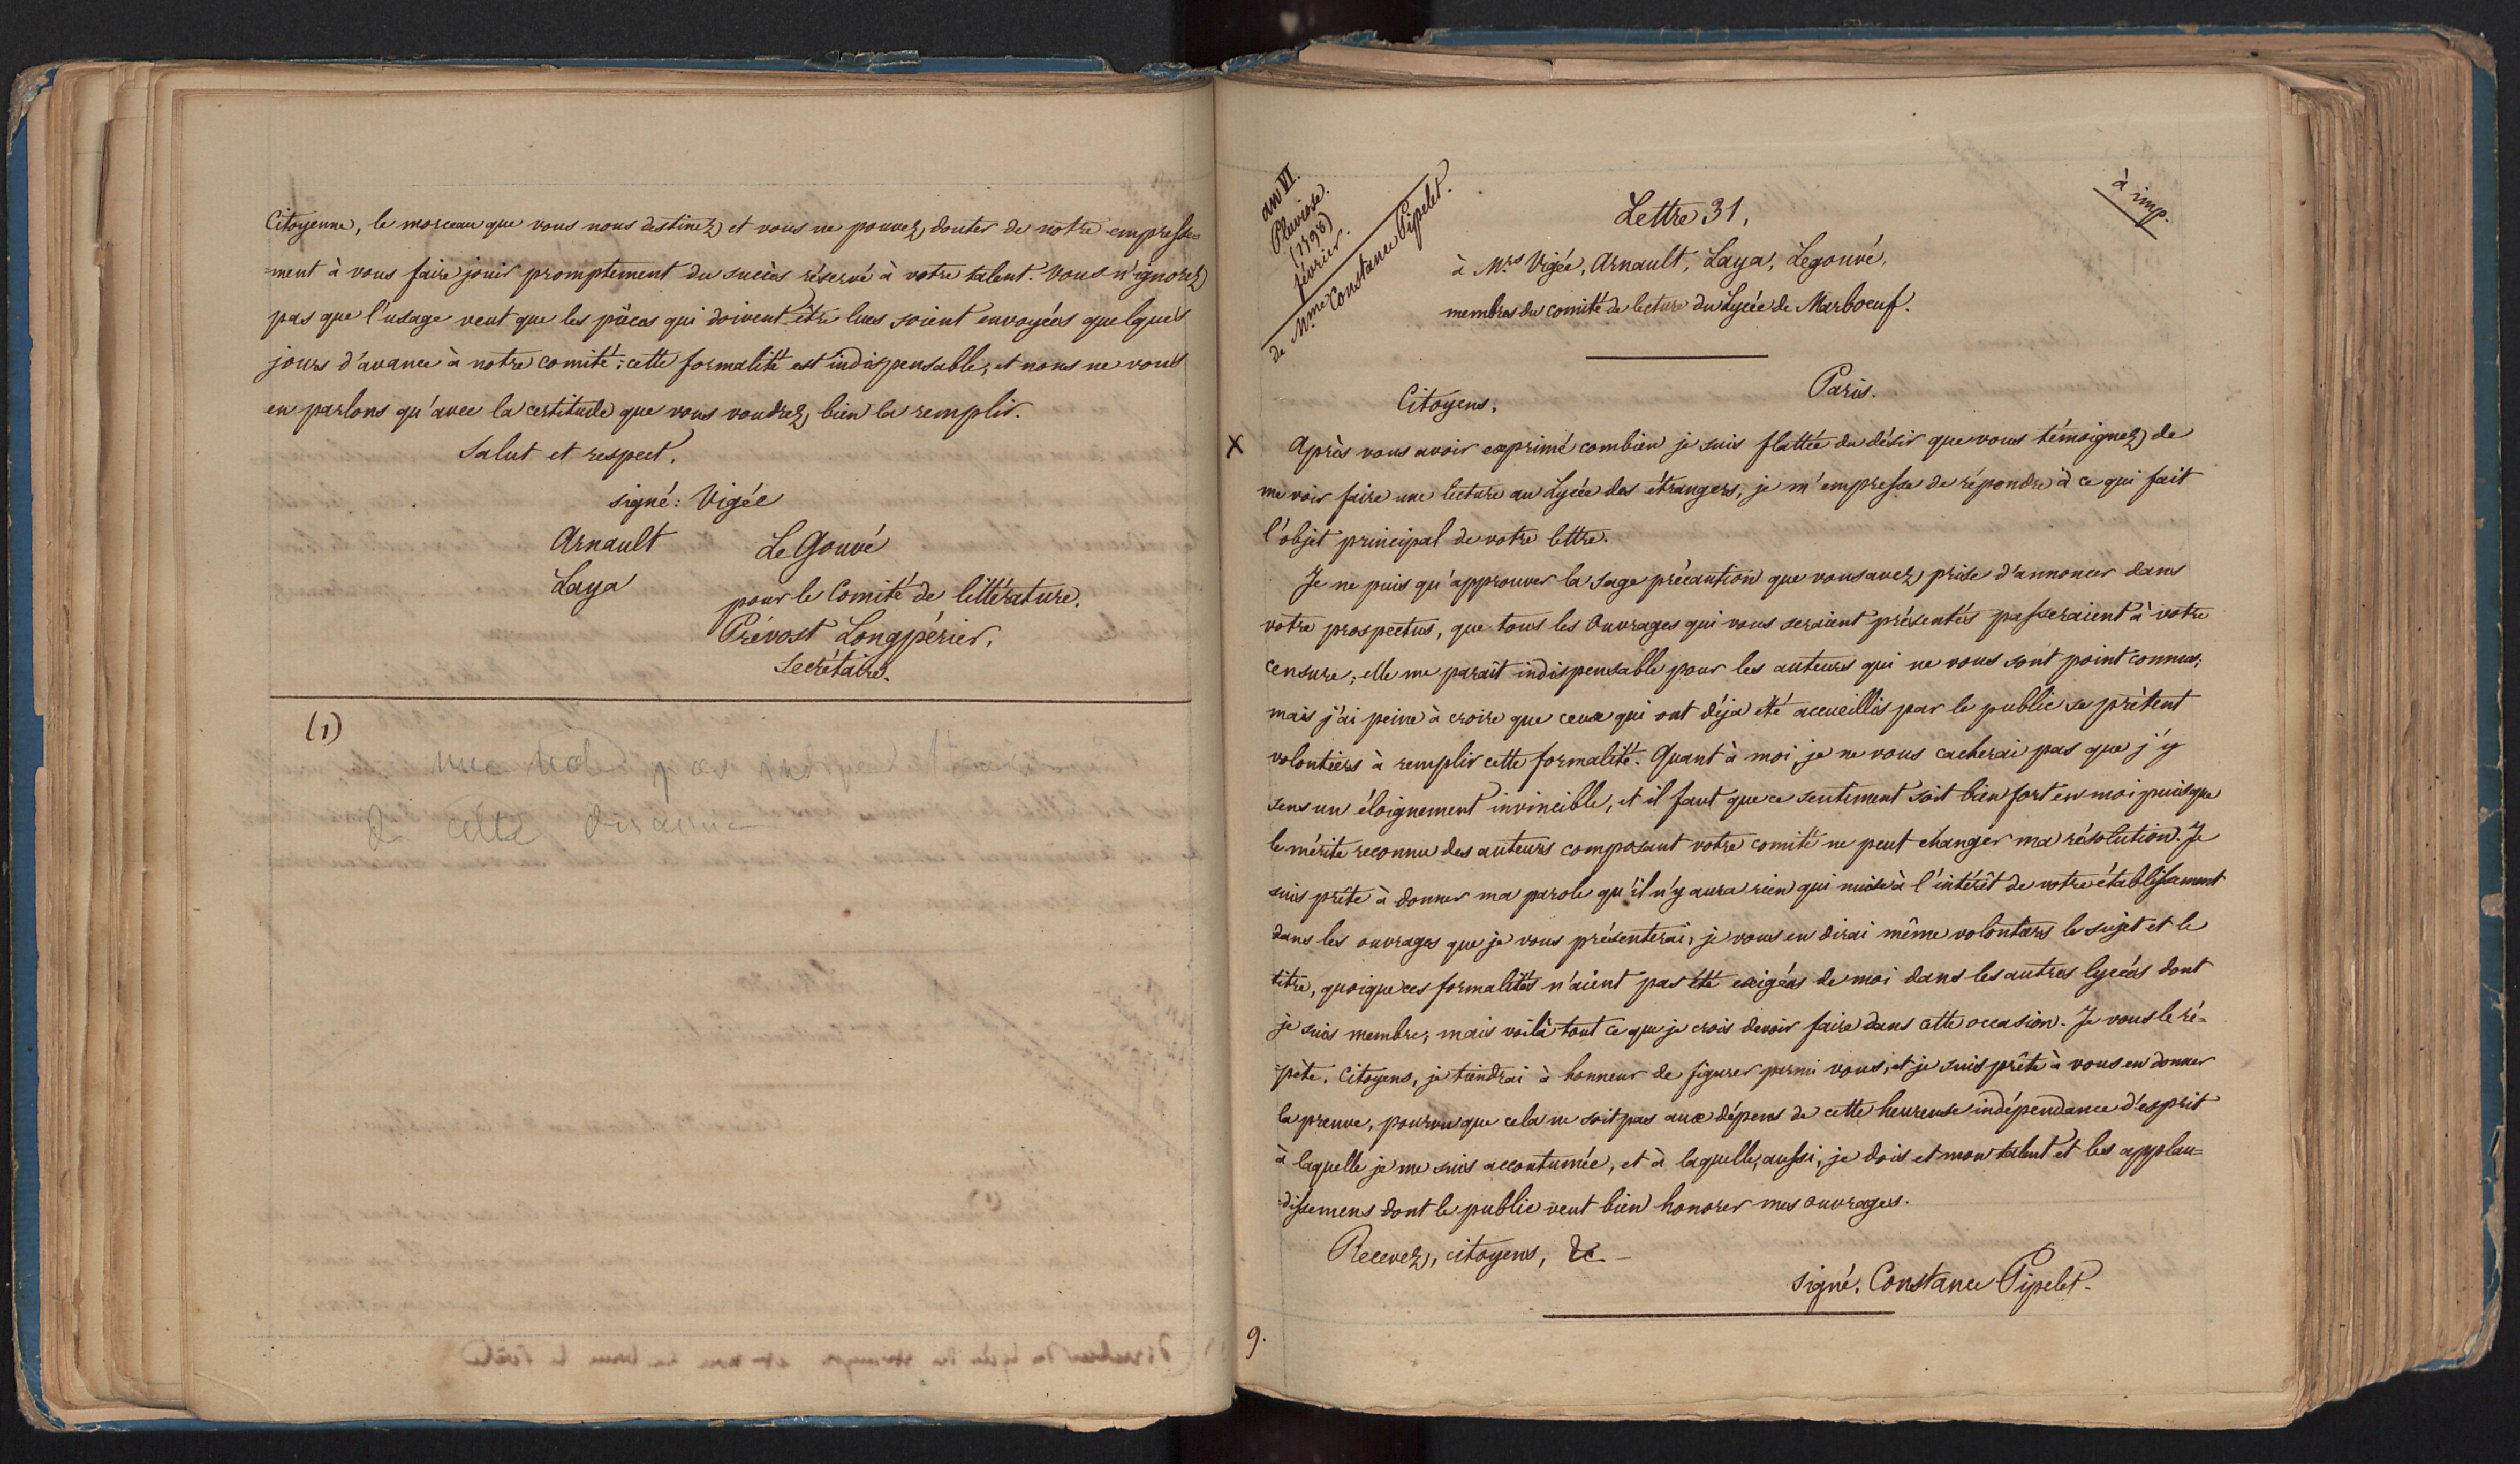 Citoyenne, le morceau que vous nous destinez et vous ne pouvez douter de notre empresse=
=ment à vous faire jouir promptement du succès réservé à votre talent. Vous n'ignorez
pas que l'usage veut que les pièces qui doivent être lues soient envoyées quelques
jours d'avance à notre comité: cette formalité est indispensable, et nous ne vous
en parlons qu'avec la certitude que vous voudrez bien la remplir.
Salut et respect.
signé: Vigée
Arnault Le Gouvé
Laya
pour le Comité de littérature.
Prévost Longpérier,
Secrétaire.
(1)
de cette
an VI.
Pluviose.
(1798)
février.
de Mme Constance Pipelet.
à imp.
Lettre 31,
à Mrs Vigée, Arnault, Laya, Legouvé,
membres du comité de lecture du Lycée de Marboeuf.
Paris.
Citoyens,
X Après vous avoir exprimé combien je suis flattée du désir que vous témoignez de
me voir faire une lecture au Lycée des étrangers, je m'empresse de répondre à ce qui fait
l'objet principal de votre lettre.
Je ne puis qu'approuver la sage précaution que vous avez prise d'annoncer dans
votre prospectus, que tous les Ouvrages qui vous seraient présentés passeraient à votre
censure; elle me paraît indispensable pour les auteurs qui ne vous sont point connus;
mais j'ai peine à croire que ceux qui ont déja été accueillis par le public se prêtent
volontiers à remplir cette formalité. Quant à moi, je ne vous cacherai pas que j'y
sens un éloignement invincible, et il faut que ce sentiment soit bien fort en moi puisque
le mérite reconnu des auteurs composant votre comité ne peut changer ma résolution. Je
suis prête à donner ma parole qu'il n'y aura rien qui nuise à l'intérêt de votre établissement
dans les ouvrages que je vous présenterai, je vous en dirai même volontiers le sujet et le
titre, quoique ces formalités n'aient pas été exigées de moi dans les autres lycées dont
je suis membre, mais voilà tout ce que je crois devoir faire dans cette occasion. Je vous le ré=
=pète, Citoyens, je tiendrai à honneur de figurer parmi vous, et je suis prête à vous en donner
la preuve, pourvu que cela ne soit pas aux dépens de cette heureuse indépendance d'esprit
à laquelle je me suis accoutumée, et à laquelle, aussi, je dois et mon talent et les applau=
=dissemens dont le public veut bien honorer mes ouvrages.
Recevez, citoyens, &c
signé, Constance Pipelet.
9.